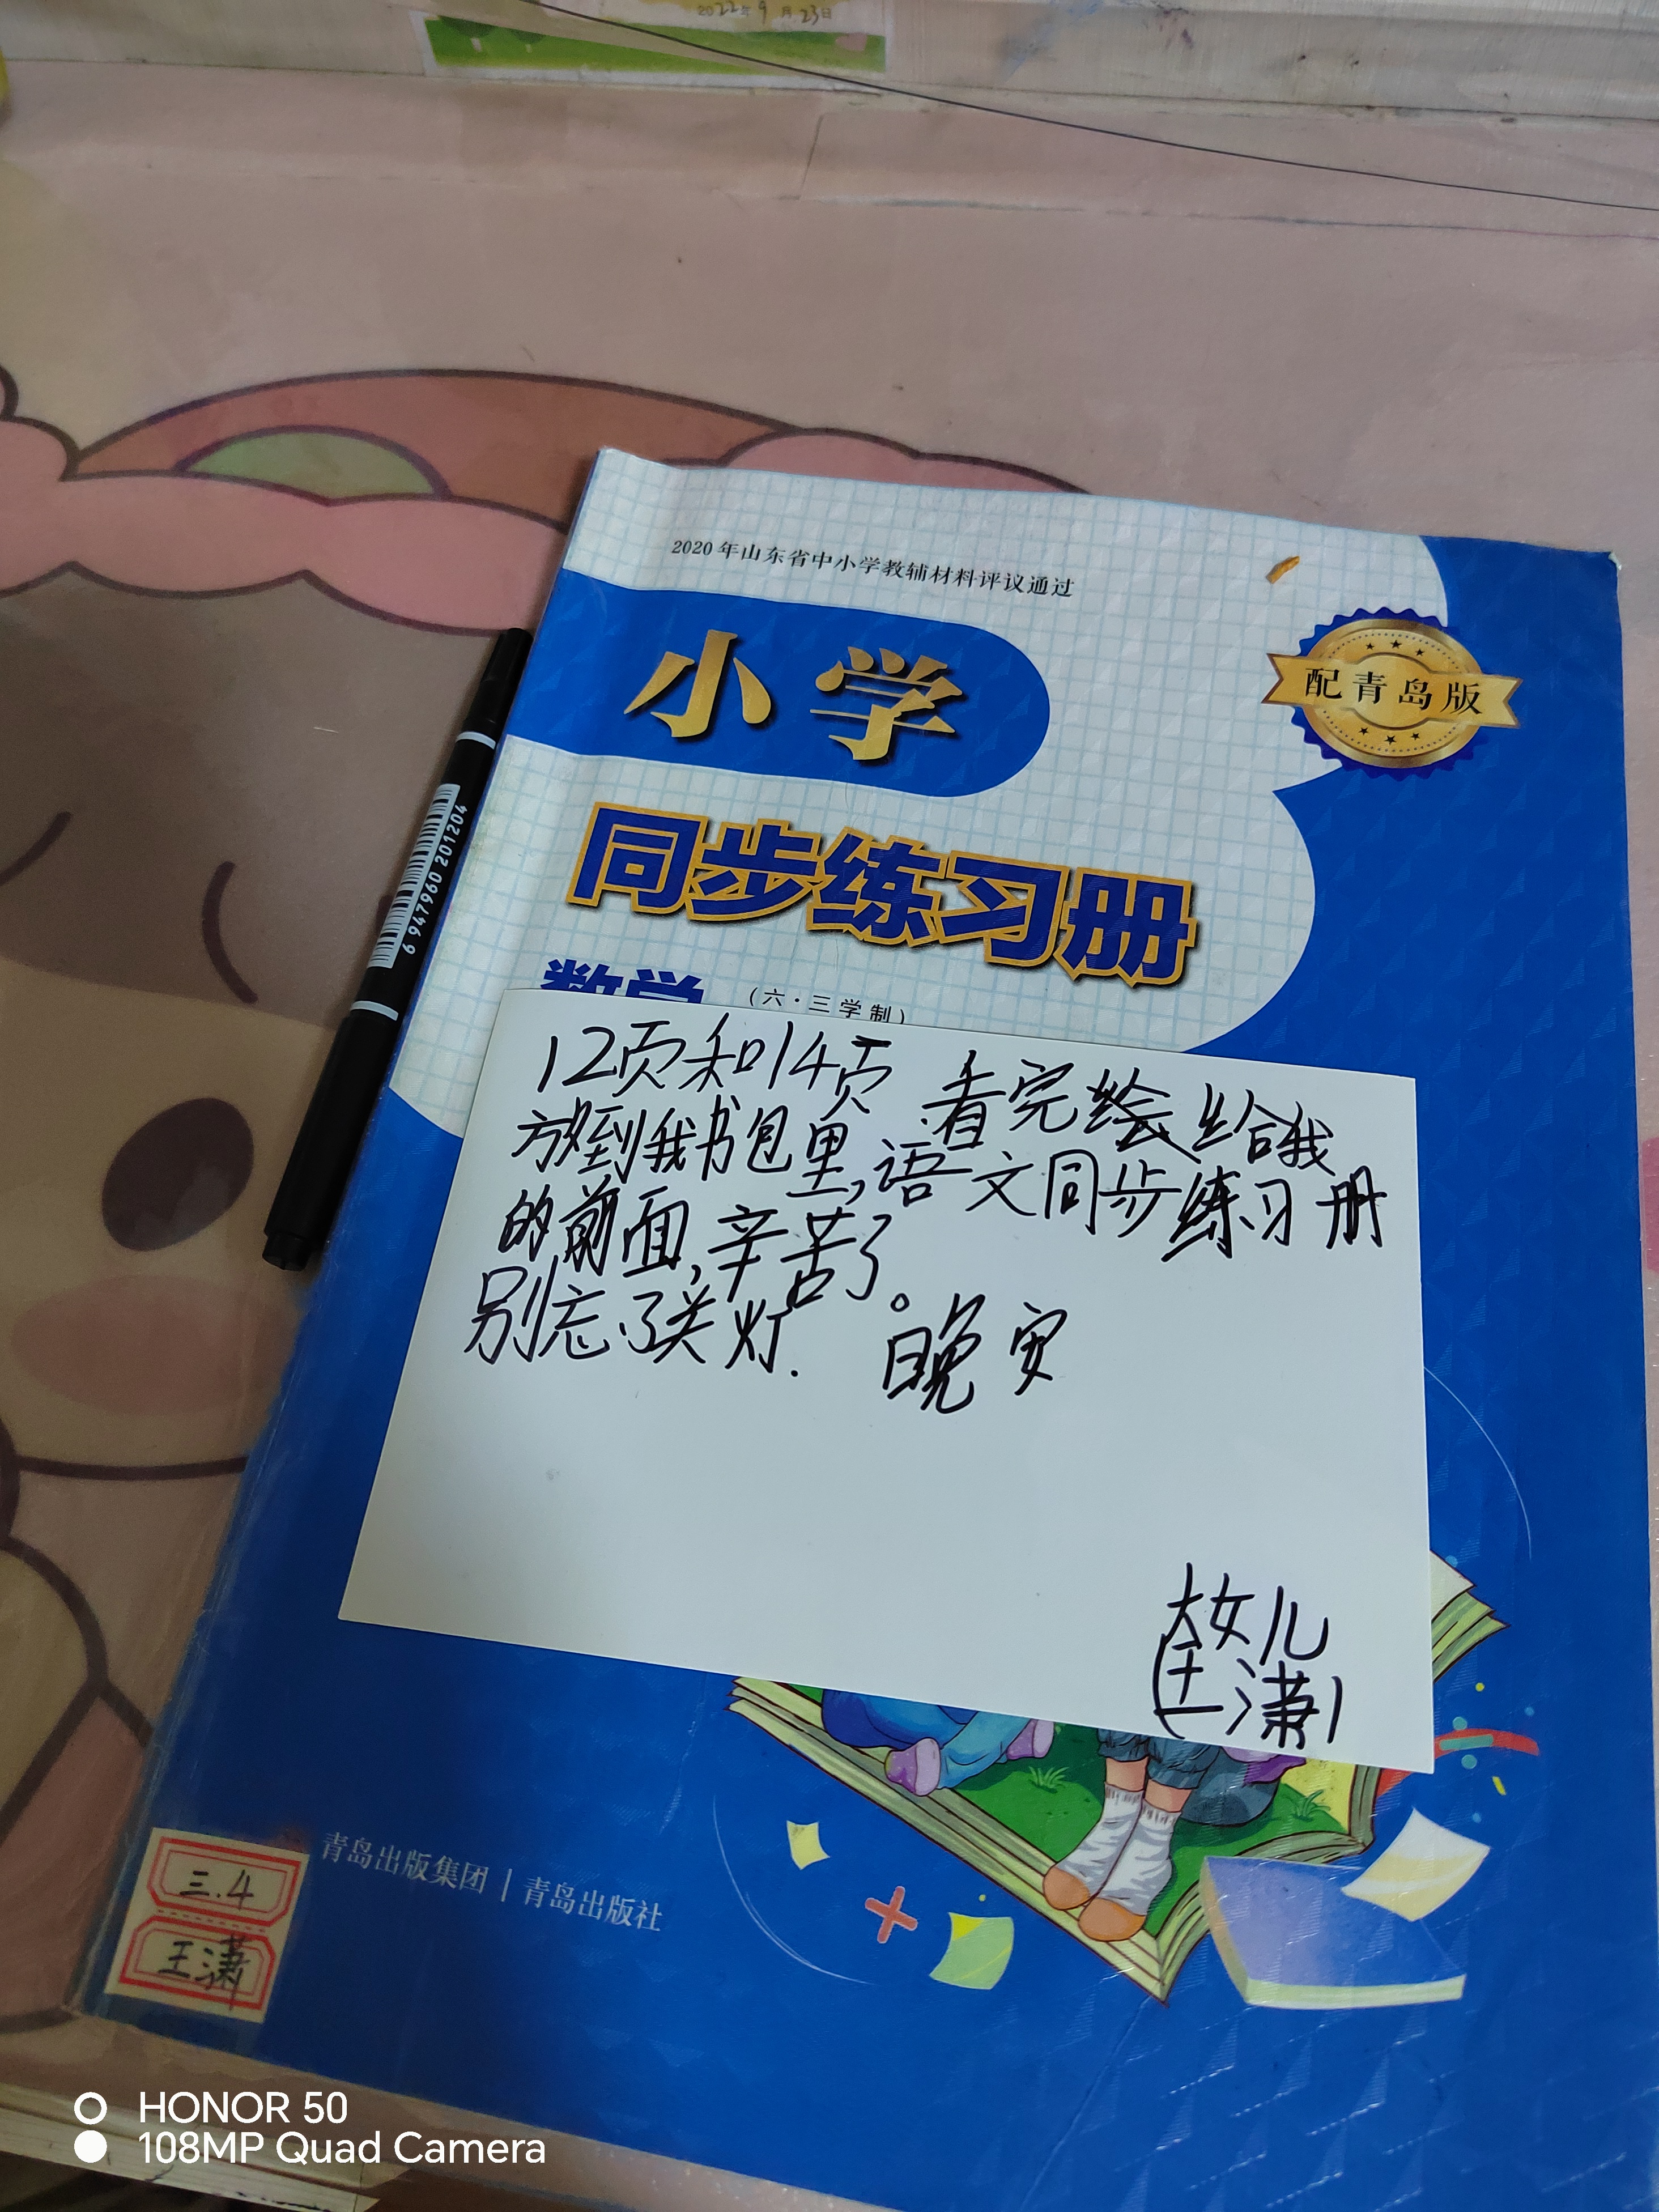 2022年9月23日
2020年山东省中小学教辅材料评议通过
小学
配青岛版
同步练习册
数学
(六·三学制)
6947960201204
12页和14页 看完绘给我
放到我书包里,语文同步练习册
的前面,辛苦了。
别忘了关灯. 晚安
大女儿
(王潇)
青岛出版集团|青岛出版社
三.4
王潇
HONOR 50
108MP Quad Camera